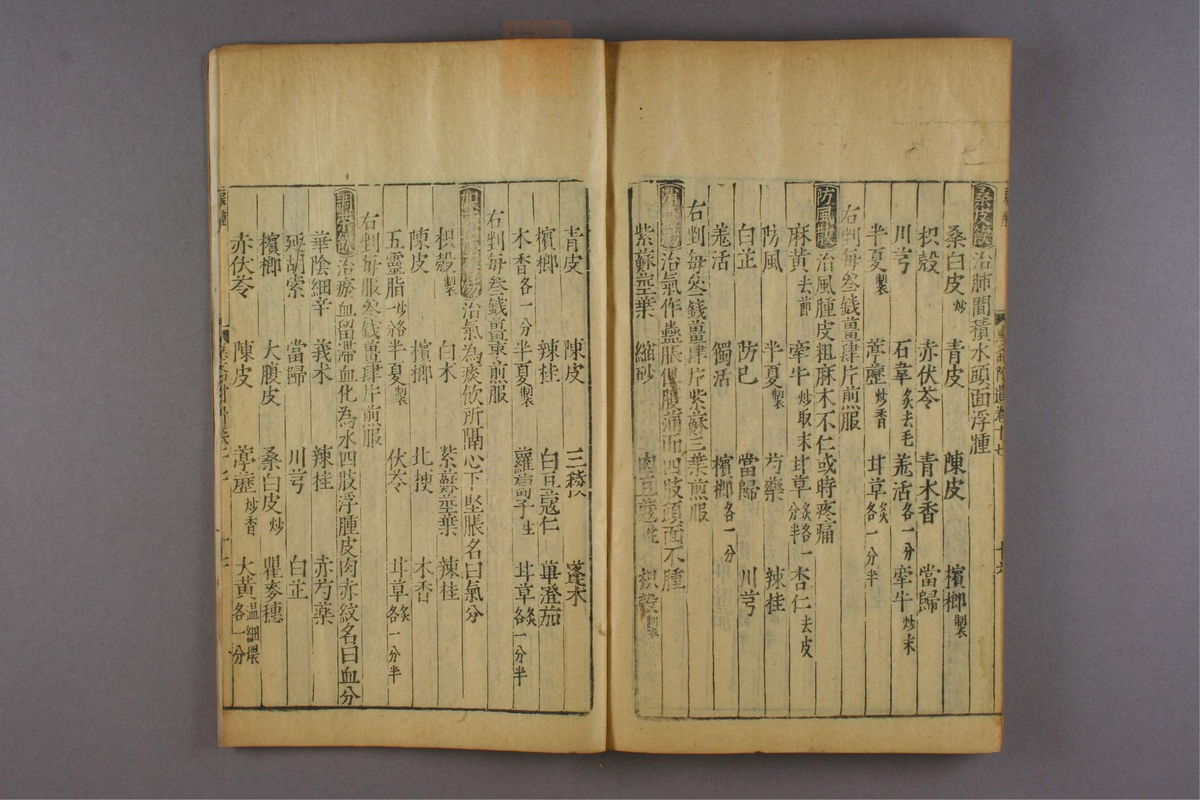 桑皮飲 治肺間積水頭面浮腫
桑白皮炒 青皮 陳皮 檳榔製
枳殼 赤伏苓 青木香 當歸
川芎 石韋炙去毛 羗活各一分 牽牛炒末
半夏製 葶藶炒香 甘草炙各一分半
右剉每叁錢薑肆片煎服
防風散 治風腫皮粗麻木不仁或時疼痛
麻黃去節 牽牛炒取末 甘草炙各一分半 杏仁去皮
防風 半夏製 芍藥 辣桂
白芷 防已 當歸 川芎
羗活 獨活 檳榔各一分
右剉每叁錢薑肆片紫蘇三葉煎服
治氣作蠱脹但腹滿而四肢頭面不腫
紫蘇莖葉 縮砂 肉豆蔻 枳殼製
青皮 陳皮 三稜 蓬朮
檳榔 辣桂 白豆寇仁 蓽澄茄
木香各一分 半夏製 蘿蔔子生 甘草炙各一分半
右剉每叁錢薑棗煎服
治氣為痰飲所隔心下堅脹名曰氣分
枳殼製 白朮 紫蘇莖葉 辣桂
陳皮 檳榔 北梗 木香
五靈脂炒各一分 半夏製 伏苓 甘草炙各一分半
右剉每服叁錢薑肆片煎服
調榮飲 治瘀血留滯血化為水四肢浮腫皮肉赤紋名曰血分
華陰細辛 莪朮 辣桂 赤芍藥
延胡索 當歸 川芎 白芷
檳榔 大腹皮 桑白皮炒 瞿麥穗
赤伏苓 陳皮 葶藶炒香 大黃溫細環各一分